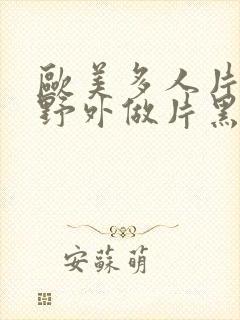 歐美多人片
野外做片黑
安蘇萌